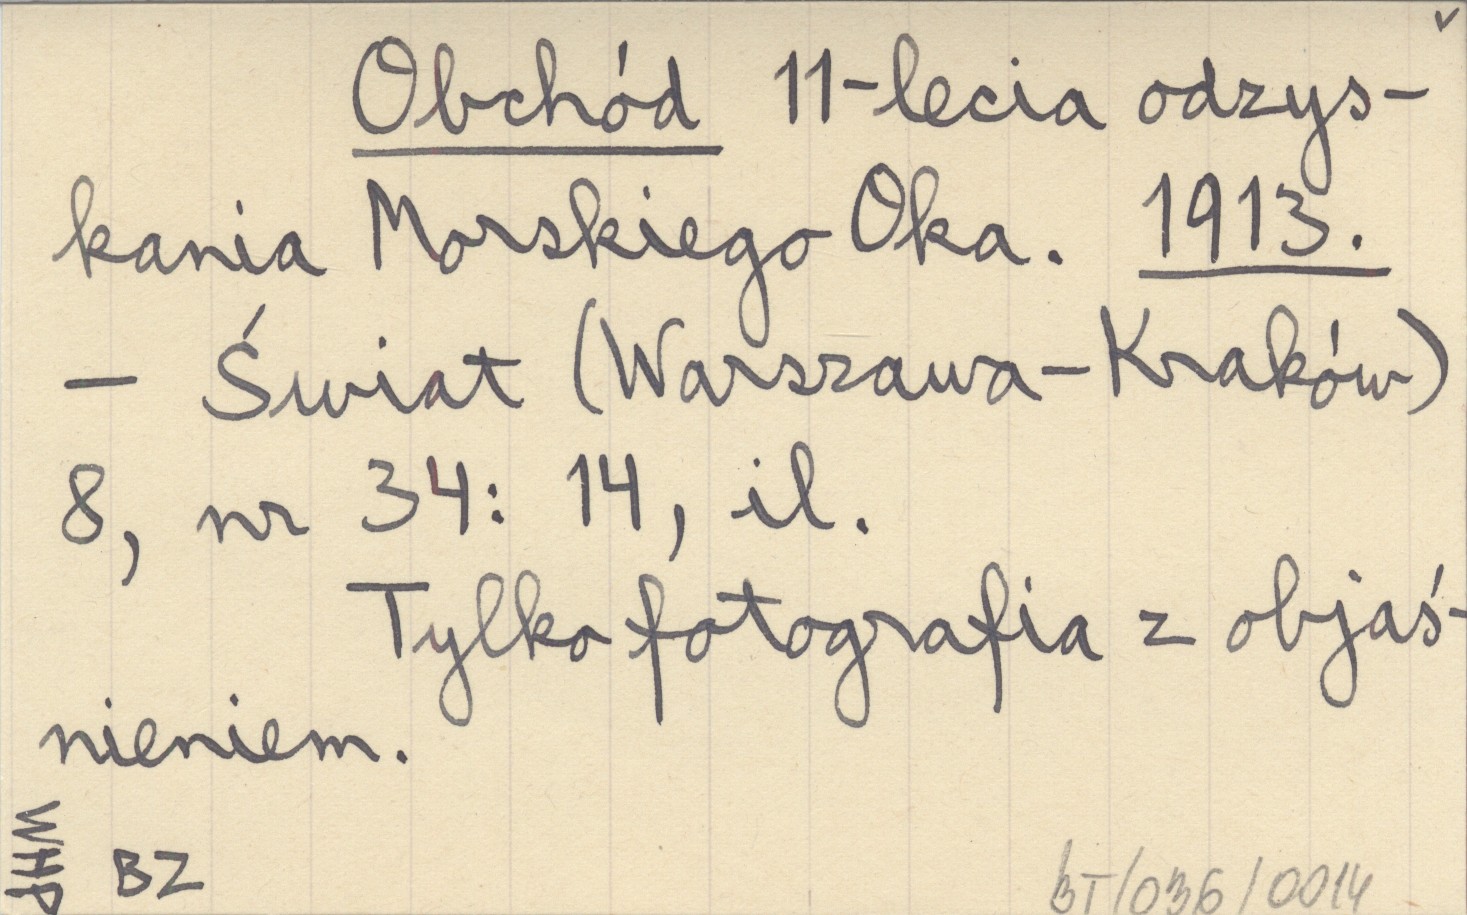 ✓
Obchód 11-lecia odzys-
kania Morskiego Oka. 1913.
– Świat (Warszawa-Kraków)
8, nr 34: 14, il.
Tylko fotografia z objaś-
nieniem.
WHP
BZ
BT/036/0014